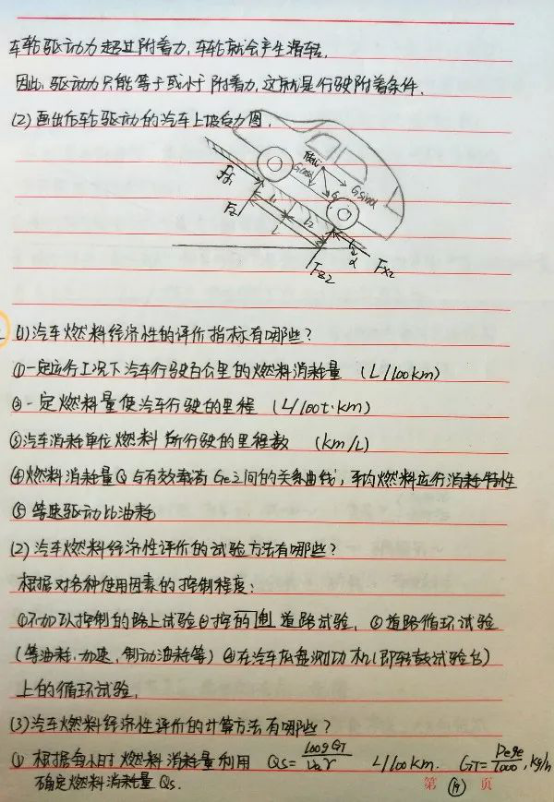 车轮驱动力超过附着力,车轮就会产生滑转.
因此,驱动力只能等于或小于附着力,这就是行驶附着条件.
(2)画出后车轮驱动的汽车上坡受力图.
Gcosα
Gsinα
G
L
α
Fx2
Fz2
(1)汽车燃料经济性的评价指标有哪些?
①一定运行工况下汽车行驶百公里的燃料消耗量 (L/100km)
②一定燃料量使汽车行驶的里程 (L/100t·km)
③汽车消耗单位燃料所行驶的里程数 (km/L)
④燃料消耗量Q与有效载荷Ge之间的关系曲线,平均燃料运行消耗特性
⑤等速驱动比油耗
(2)汽车燃料经济性评价的试验方法有哪些?
根据对各种使用因素的控制程度:
①不加以控制的路上试验②控制道路试验,③道路循环试验
(等油耗,加速,制动油耗等)④在汽车底盘测功机(即转鼓试验台)
上的循环试验.
(3)汽车燃料经济性评价的计算方法有哪些?
① 根据每小时燃料消耗量利用 Qs=100GT/uaγ L/100km. GT=Pege/1000,kg/h
确定燃料消耗量Qs.
第 页